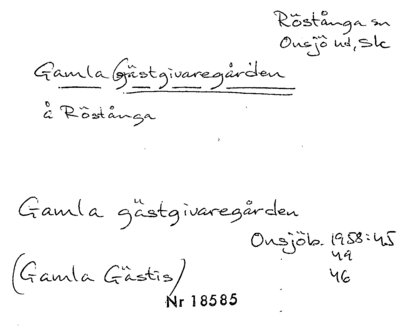 Röstånga sn
Onsjö hd, Sk
Gamla Gästgivaregården
å Röstånga
Gamla gästgivaregården
Onsjöb. 1958:45
49
(Gamla Gästis) 46
Nr 18585